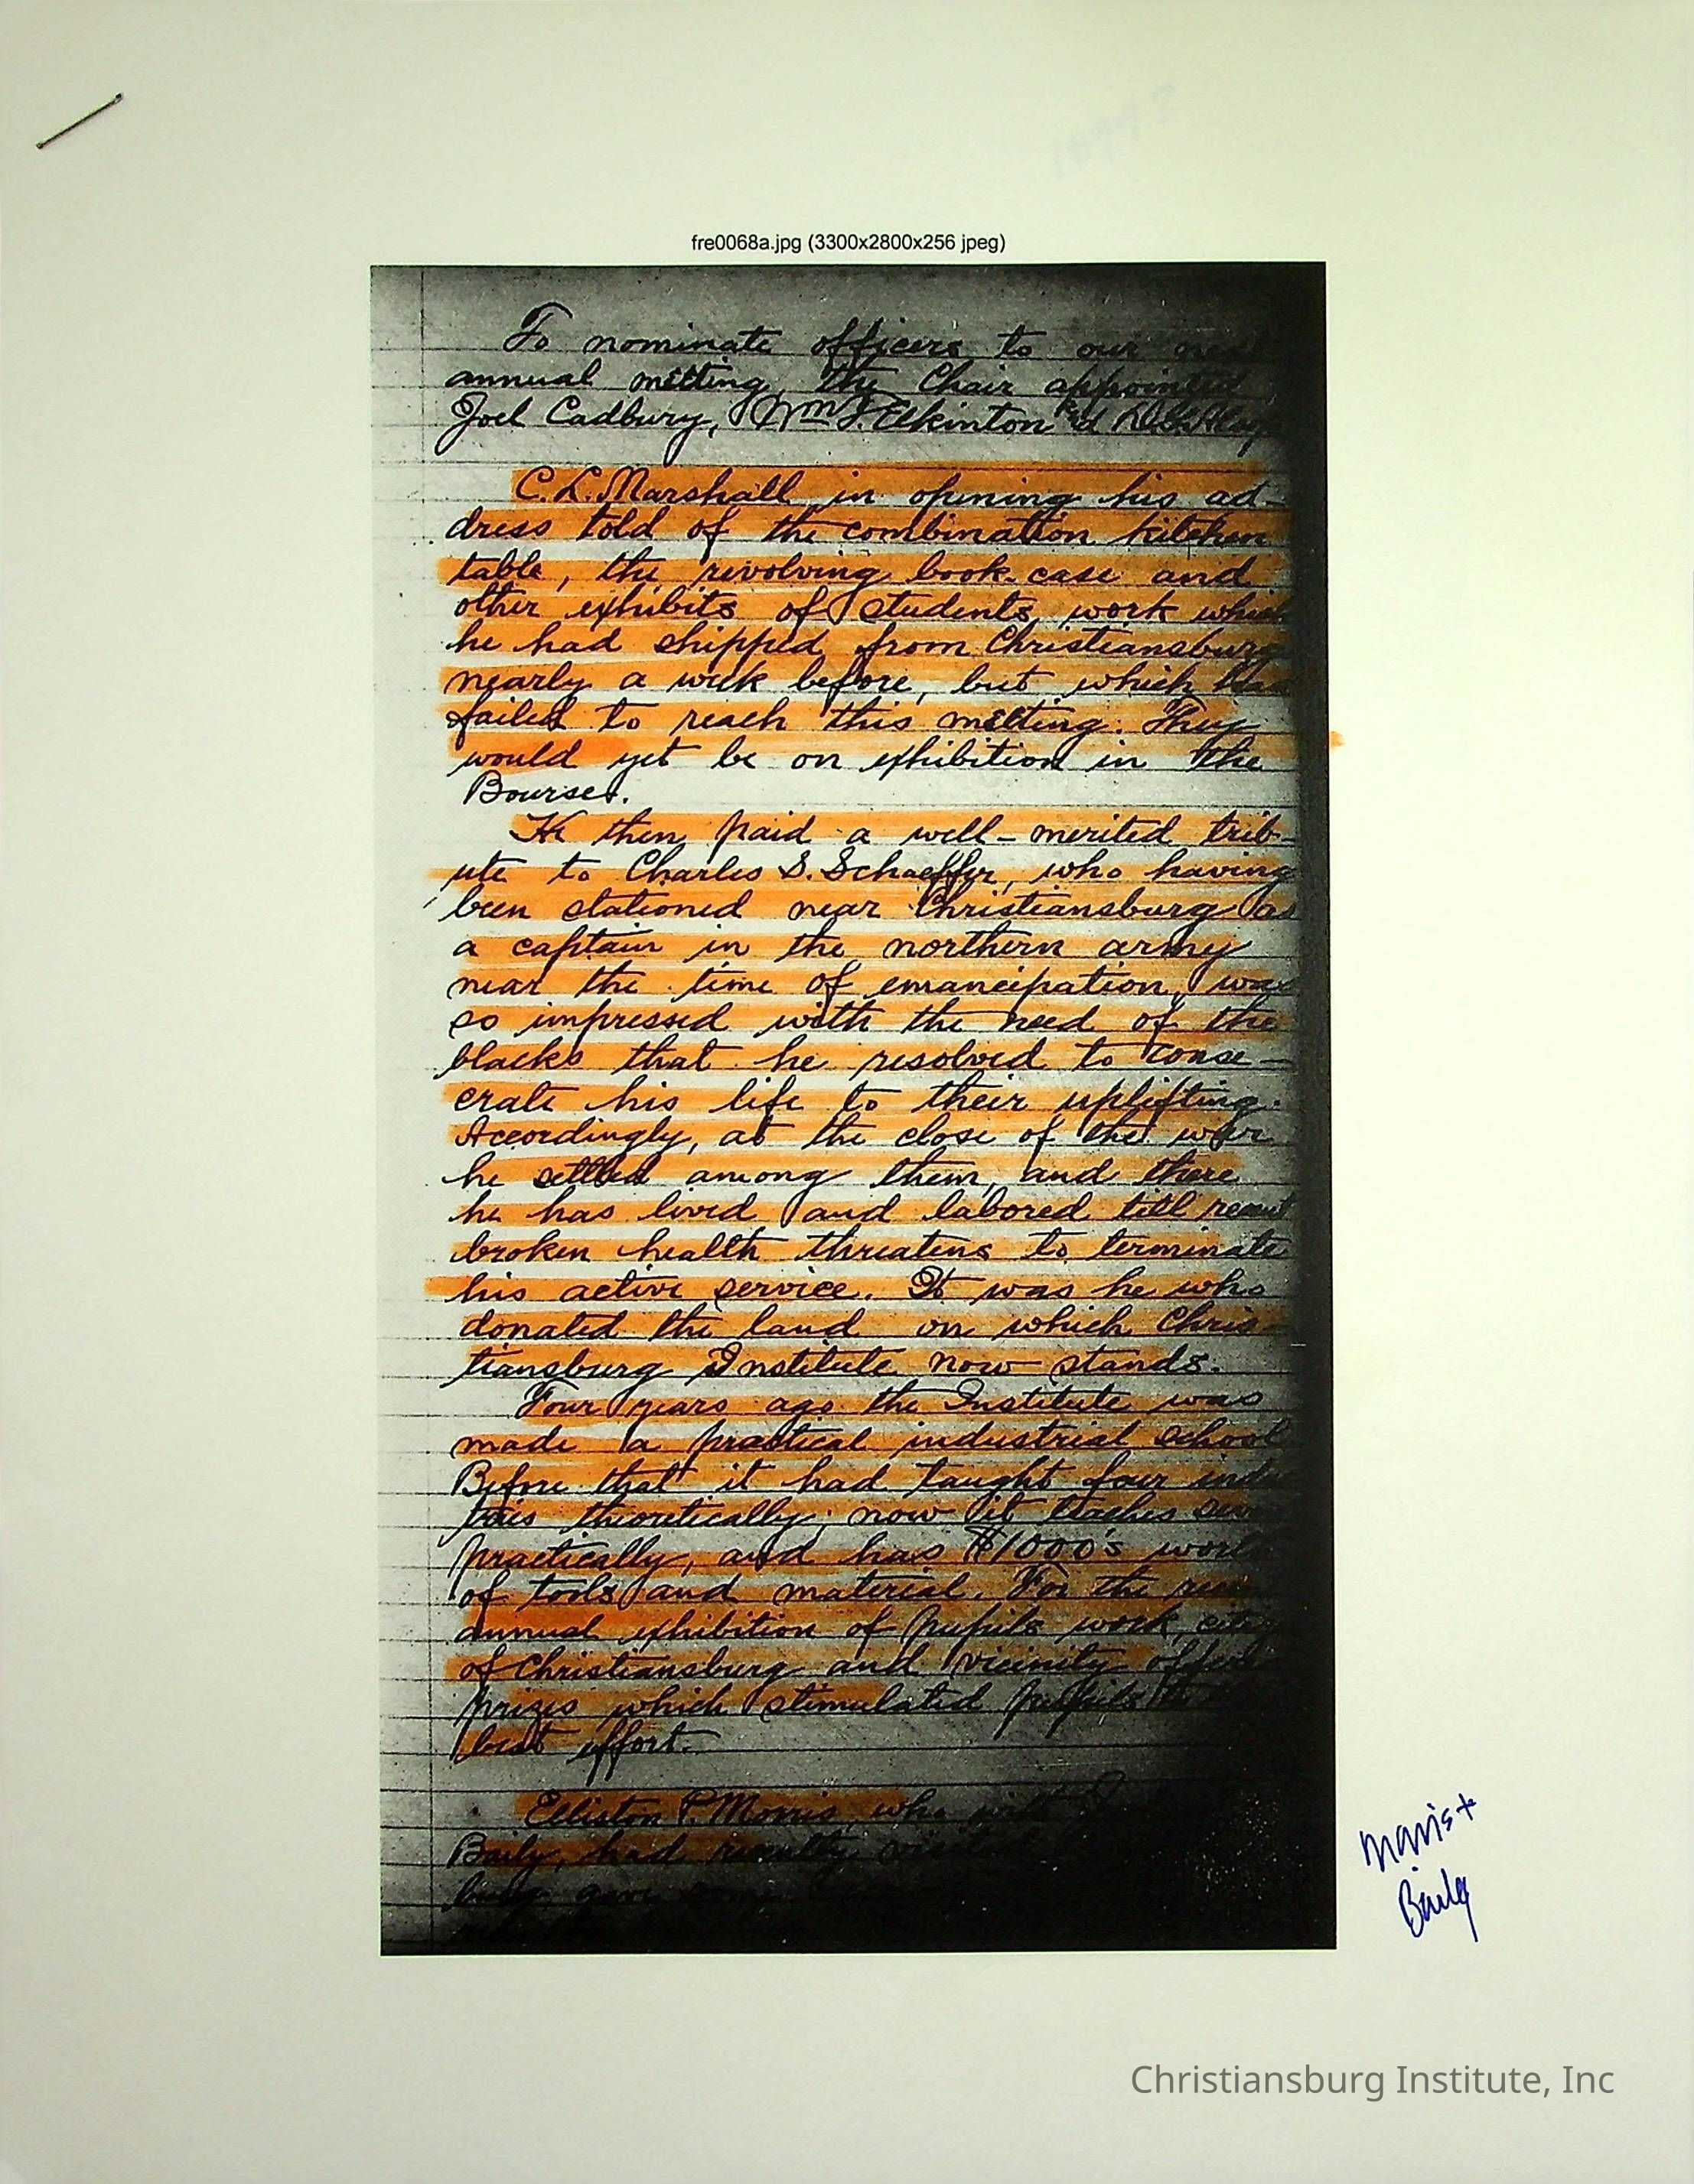 fre0068a.jpg (3300x2800x256 jpeg)
To nominate officers to our
annual meeting, the Chair appointed
Joel Cadbury, Wm T. Elkinton
C. L. Marshall in opening his ad-
dress told of the combination kitchen
table, the revolving book-case and
other exhibits of students work which
he had shipped from Christiansburg
nearly a week before, but which
failed to reach this meeting. They
would yet be on exhibition in the
Bourse.
He then paid a well-merited trib-
ute to Charles S. Schaeffer, who having
been stationed near Christiansburg as
a captain in the northern army
near the time of emancipation, was
so impressed with the need of the
blacks that he resolved to conse-
crate his life to their uplifting.
Accordingly, at the close of the war
he settled among them, and there
he has lived and labored till recent
broken health threatens to terminate
his active service. It was he who
donated the land on which Chris-
tiansburg Institute now stands.
Four years ago the Institute was
made a practical industrial school
Before that it had taught four
theoretically; now it teaches
practically, and has $1000's worth
of tools and material. For the
annual exhibition of pupils work,
of Christiansburg and vicinity
prizes which stimulated pupils
best effort.
Elliston P. Morris, who
Baily, had recently
Morris +
Baily
Christiansburg Institute, Inc